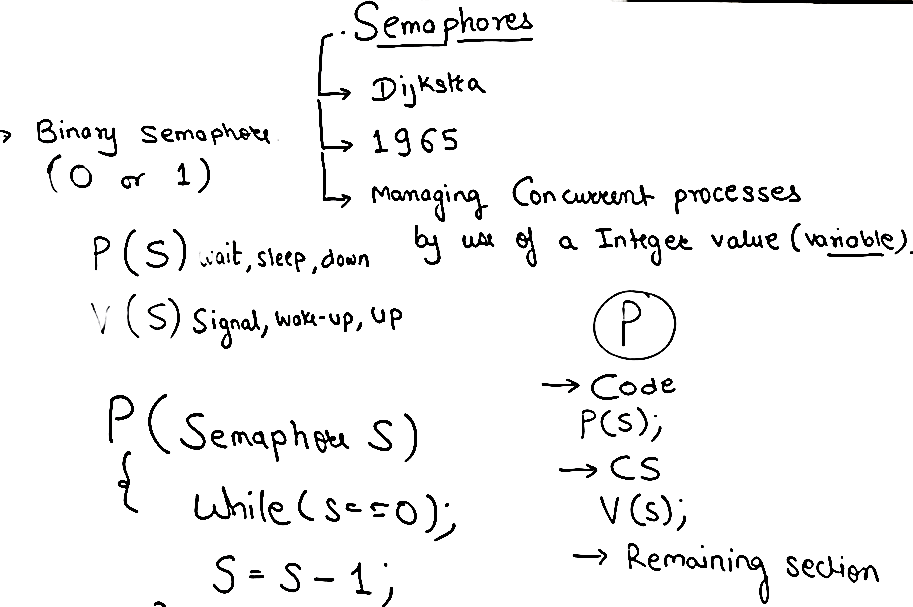 Semaphores
→ Dijkstra
→ 1965
→ Managing Concurrent processes
by use of a Integer value (variable).
→ Binary Semaphore
(0 or 1)
P(S) wait, sleep, down
V(S) Signal, wake-up, up
P(Semaphore S)
{
While(S==0);
S = S - 1;
P
→ Code
P(S);
→ CS
V(S);
→ Remaining section